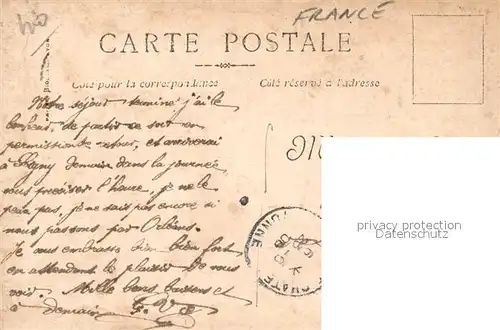 40
FRANCE
CARTE POSTALE
Côté pour la correspondance
Côté réservé à l'adresse
Notre séjour terminé, j'ai le
bonheur, de partir ce soir en
permission et arriverai
à demain dans la journée,
vous préciser l'heure, je ne le
peux pas, je ne sais pas encore si
nous passons par Orléans.
Je vous embrasse bien bien fort
en attendant le plaisir de vous
voir. Mille bons baisers et
à demain
YONNE
privacy protection
Datenschutz